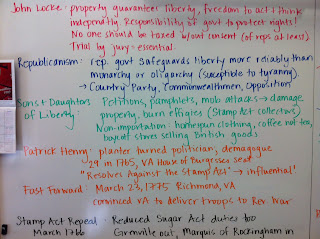 John Locke: property guarantees liberty, freedom to act & think
independently. Responsibility of govt to protect rights!
No one should be taxed w/out consent (of reps at least)
Trial by jury = essential.
Republicanism: rep. govt safeguards liberty more reliably than
monarchy or oligarchy (susceptible to tyranny).
→ Country Party, Commonwealthmen, Opposition
Sons + Daughters of Liberty: Petitions, pamphlets, mob attacks → damage
property, burn effigies (Stamp Act collectors)
Non-importation: homespun clothing, coffee not tea,
boycott stores selling British goods
Patrick Henry: planter turned politician, demagogue
29 in 1765, VA House of Burgesses seat
"Resolves Against the Stamp Act" → influential!
Fast Forward: March 23, 1775 Richmond, VA
convinced VA to deliver troops to Rev. War
Stamp Act Repeal - Reduced Sugar Act duties too
March 1766 Grenville out, Marquis of Rockingham in